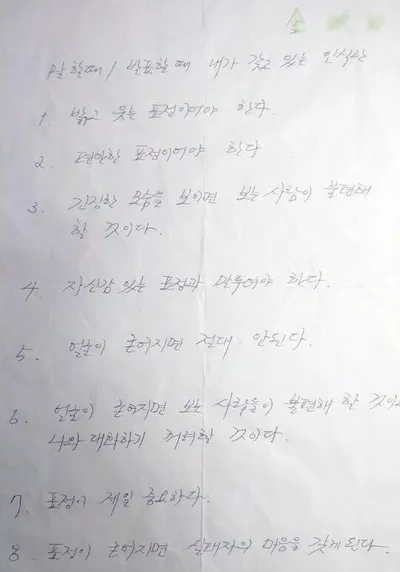 金
말 할때 / 발표할 때 내가 갖고 있는 인식은
1. 밝고 웃는 표정이어야 한다.
2. 편안한 표정이어야 한다
3. 긴장한 모습을 보이면 보는 사람이 불편해
할 것이다.
4. 자신감 있는 표정과 말투여야 한다.
5. 얼굴이 굳어지면 절대 안된다.
6. 얼굴이 굳어지면 보는 사람들이 불편해 할 것이고
나와 대화하기 꺼려할 것이다.
7. 표정이 제일 중요하다.
8. 표정이 굳어지면 실패자의 마음을 갖게된다.